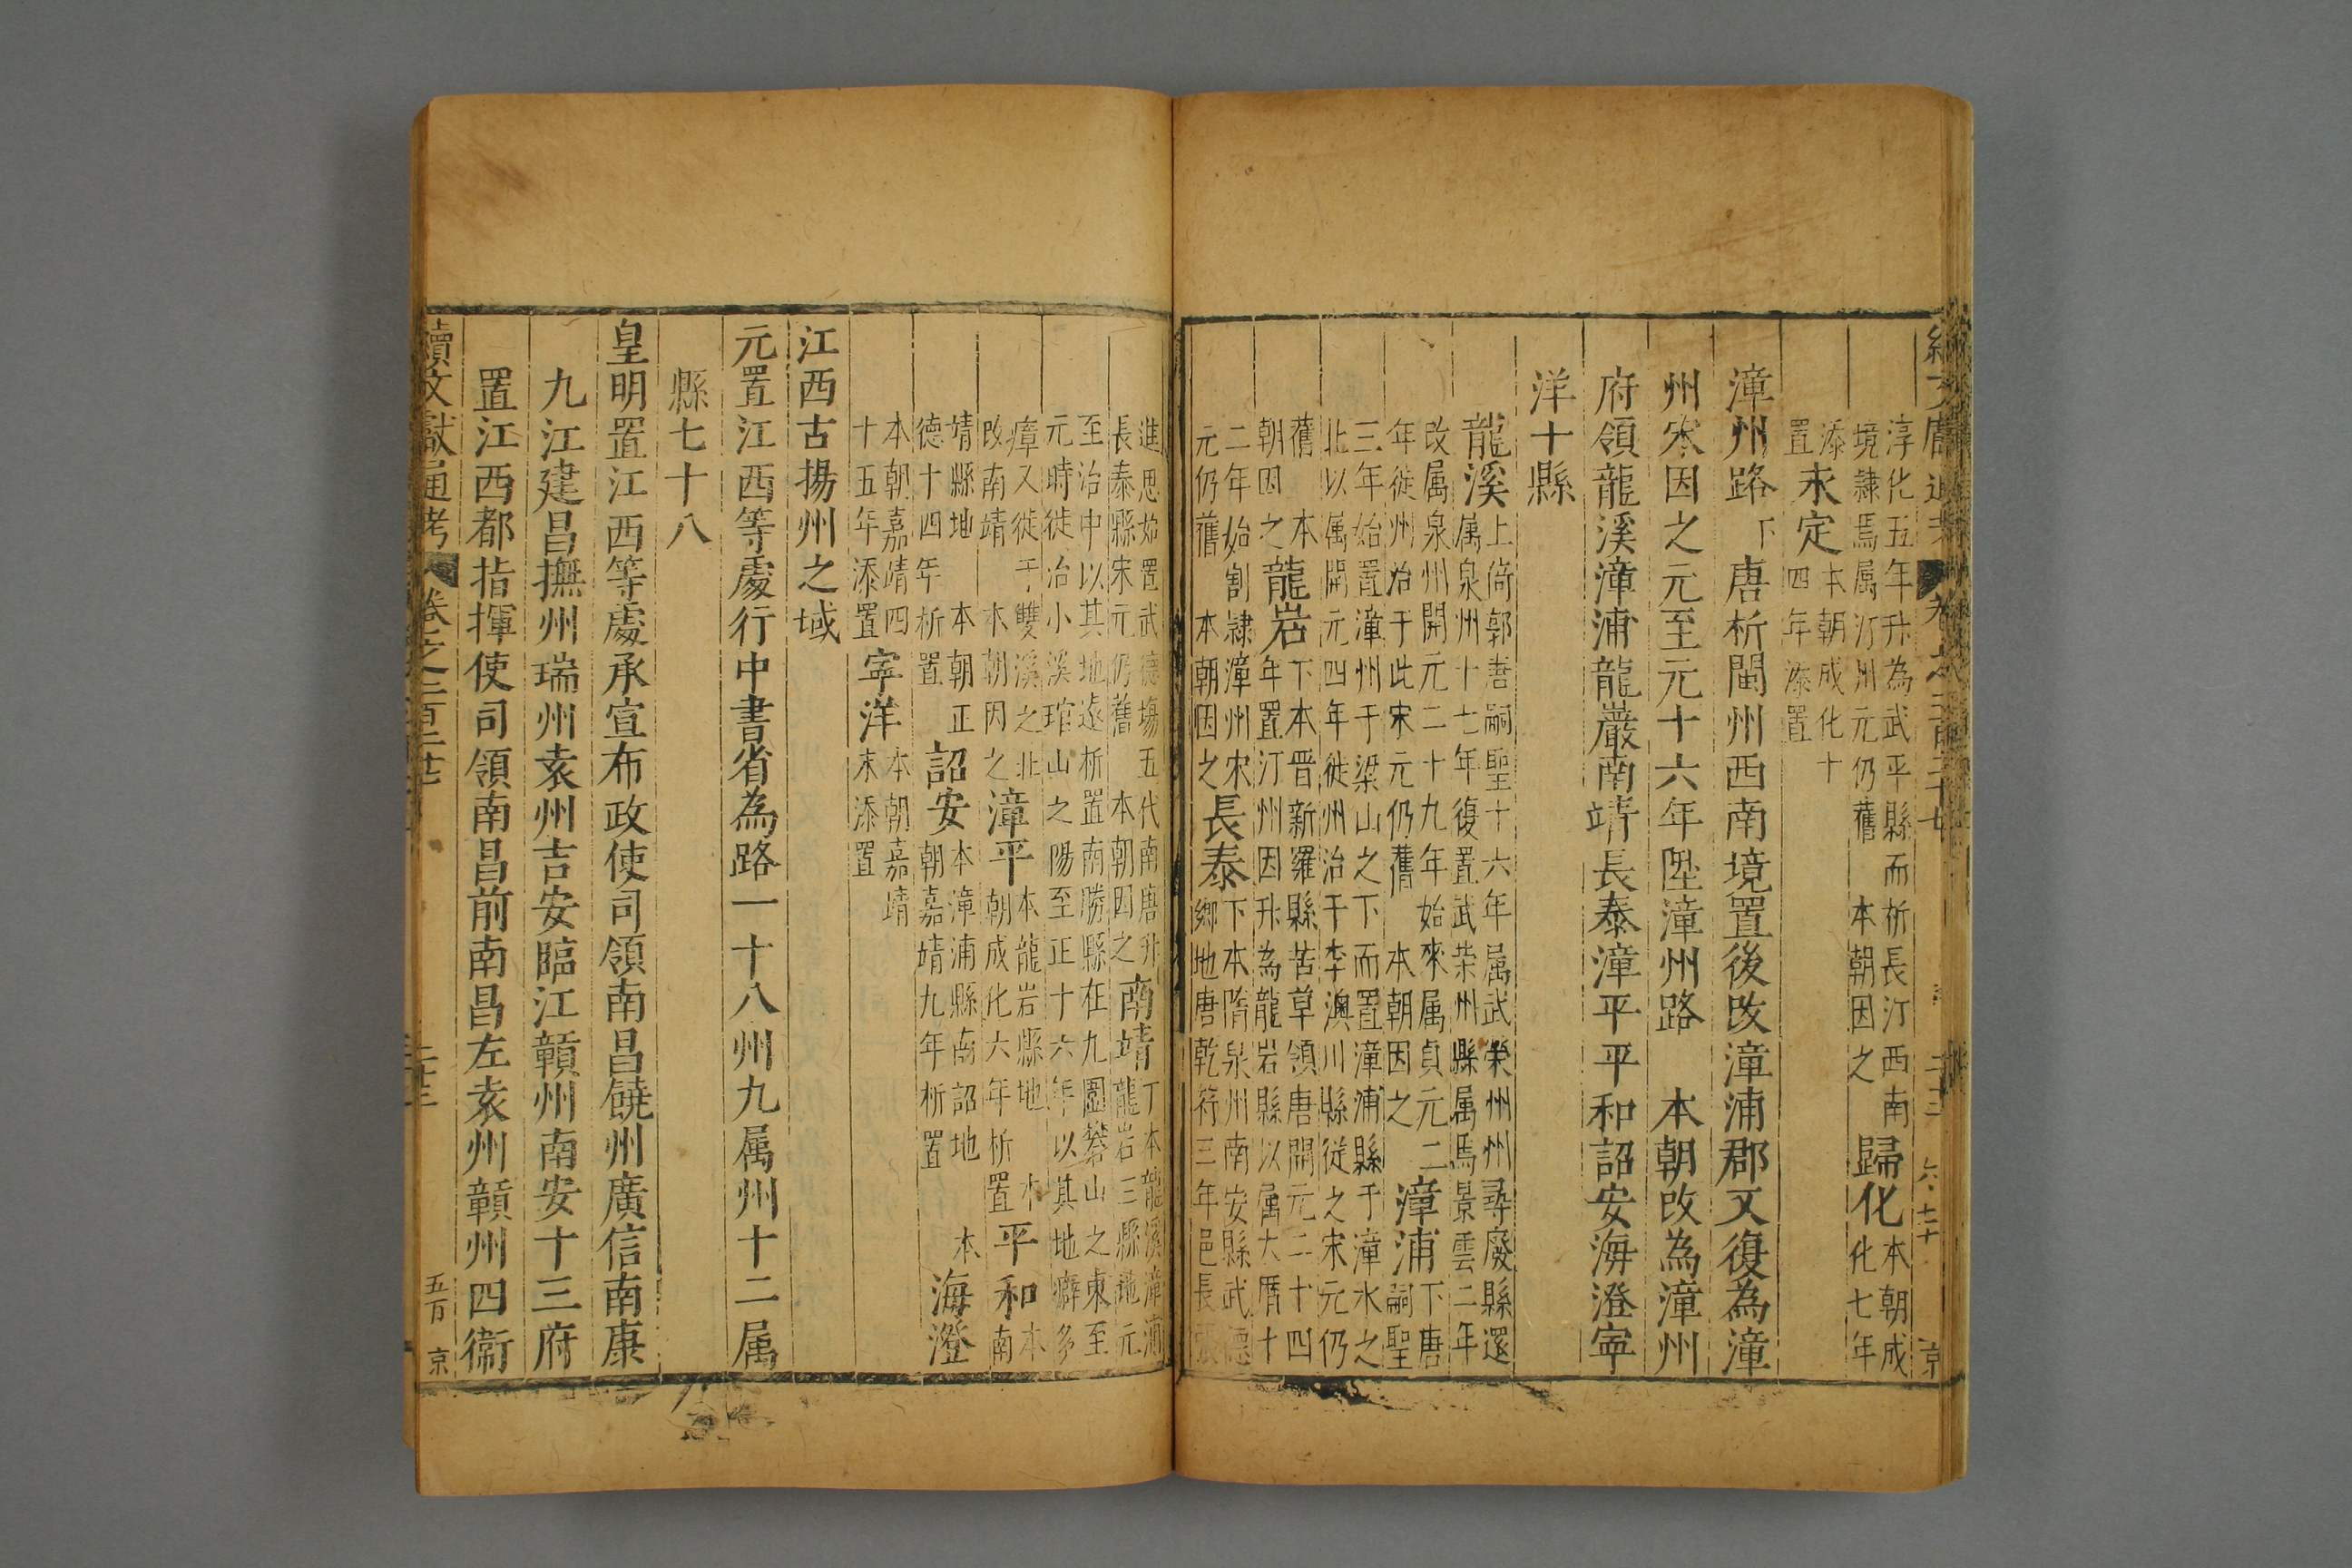 淳化五年升為武平縣而析長汀西南
境隷焉属汀州元仍舊　本朝因之歸化本朝成化七年
添置永定本朝成化十四年添置
漳州路下唐析閩州西南境置後改漳浦郡又復為漳
州宋因之元至元十六年陞漳州路　本朝改為漳州
府領龍溪漳浦龍巖南靖長泰漳平平和詔安海澄寧
洋十縣
龍溪上倚郭唐嗣聖十六年属武榮州州尋廢縣還
属泉州十七年復置武荣州縣属焉景雲二年
改属泉州開元二十九年始來属貞元二
年徙州治于此宋元仍舊　本朝因之漳浦下唐嗣聖
三年始置漳州于梁山之下而置漳浦縣于漳水之
北以属開元四年徙州治于李澳川縣從之宋元仍
舊　本朝因之龍岩下本晋新羅縣苦草領唐開元二十四
年置汀州因升為龍岩縣以属大曆十
二年始割隷漳州宋元仍舊　本朝因之長泰下本隋泉州南安縣武德
鄉地唐乾符三年邑長張
進思始置武德塲五代南唐升
長泰縣宋元仍舊　本朝因之南靖丁本龍溪漳浦龍岩三縣地元
至治中以其地遠析置南勝縣在九圍礬山之東至
元時徙治小溪琯山之陽至正十六年以其地癖多
瘴又徙于雙溪之北改南靖　本朝因之漳平本龍岩縣地　本朝成化六年析置平和本南
靖縣地　本朝正德十四年析置詔安本漳浦縣南詔地　本朝嘉靖九年析置海澄
本朝嘉靖四十五年添置寧洋本朝嘉靖末添置
江西古揚州之域
元置江西等處行中書省為路一十八州九属州十二属
縣七十八
皇明置江西等處承宣布政使司領南昌饒州廣信南康
九江建昌撫州瑞州袁州吉安臨江贛州南安十三府
置江西都指揮使司領南昌前南昌左袁州贛州四衛
續文獻通考　卷之二百二十七　二十三　五百　京